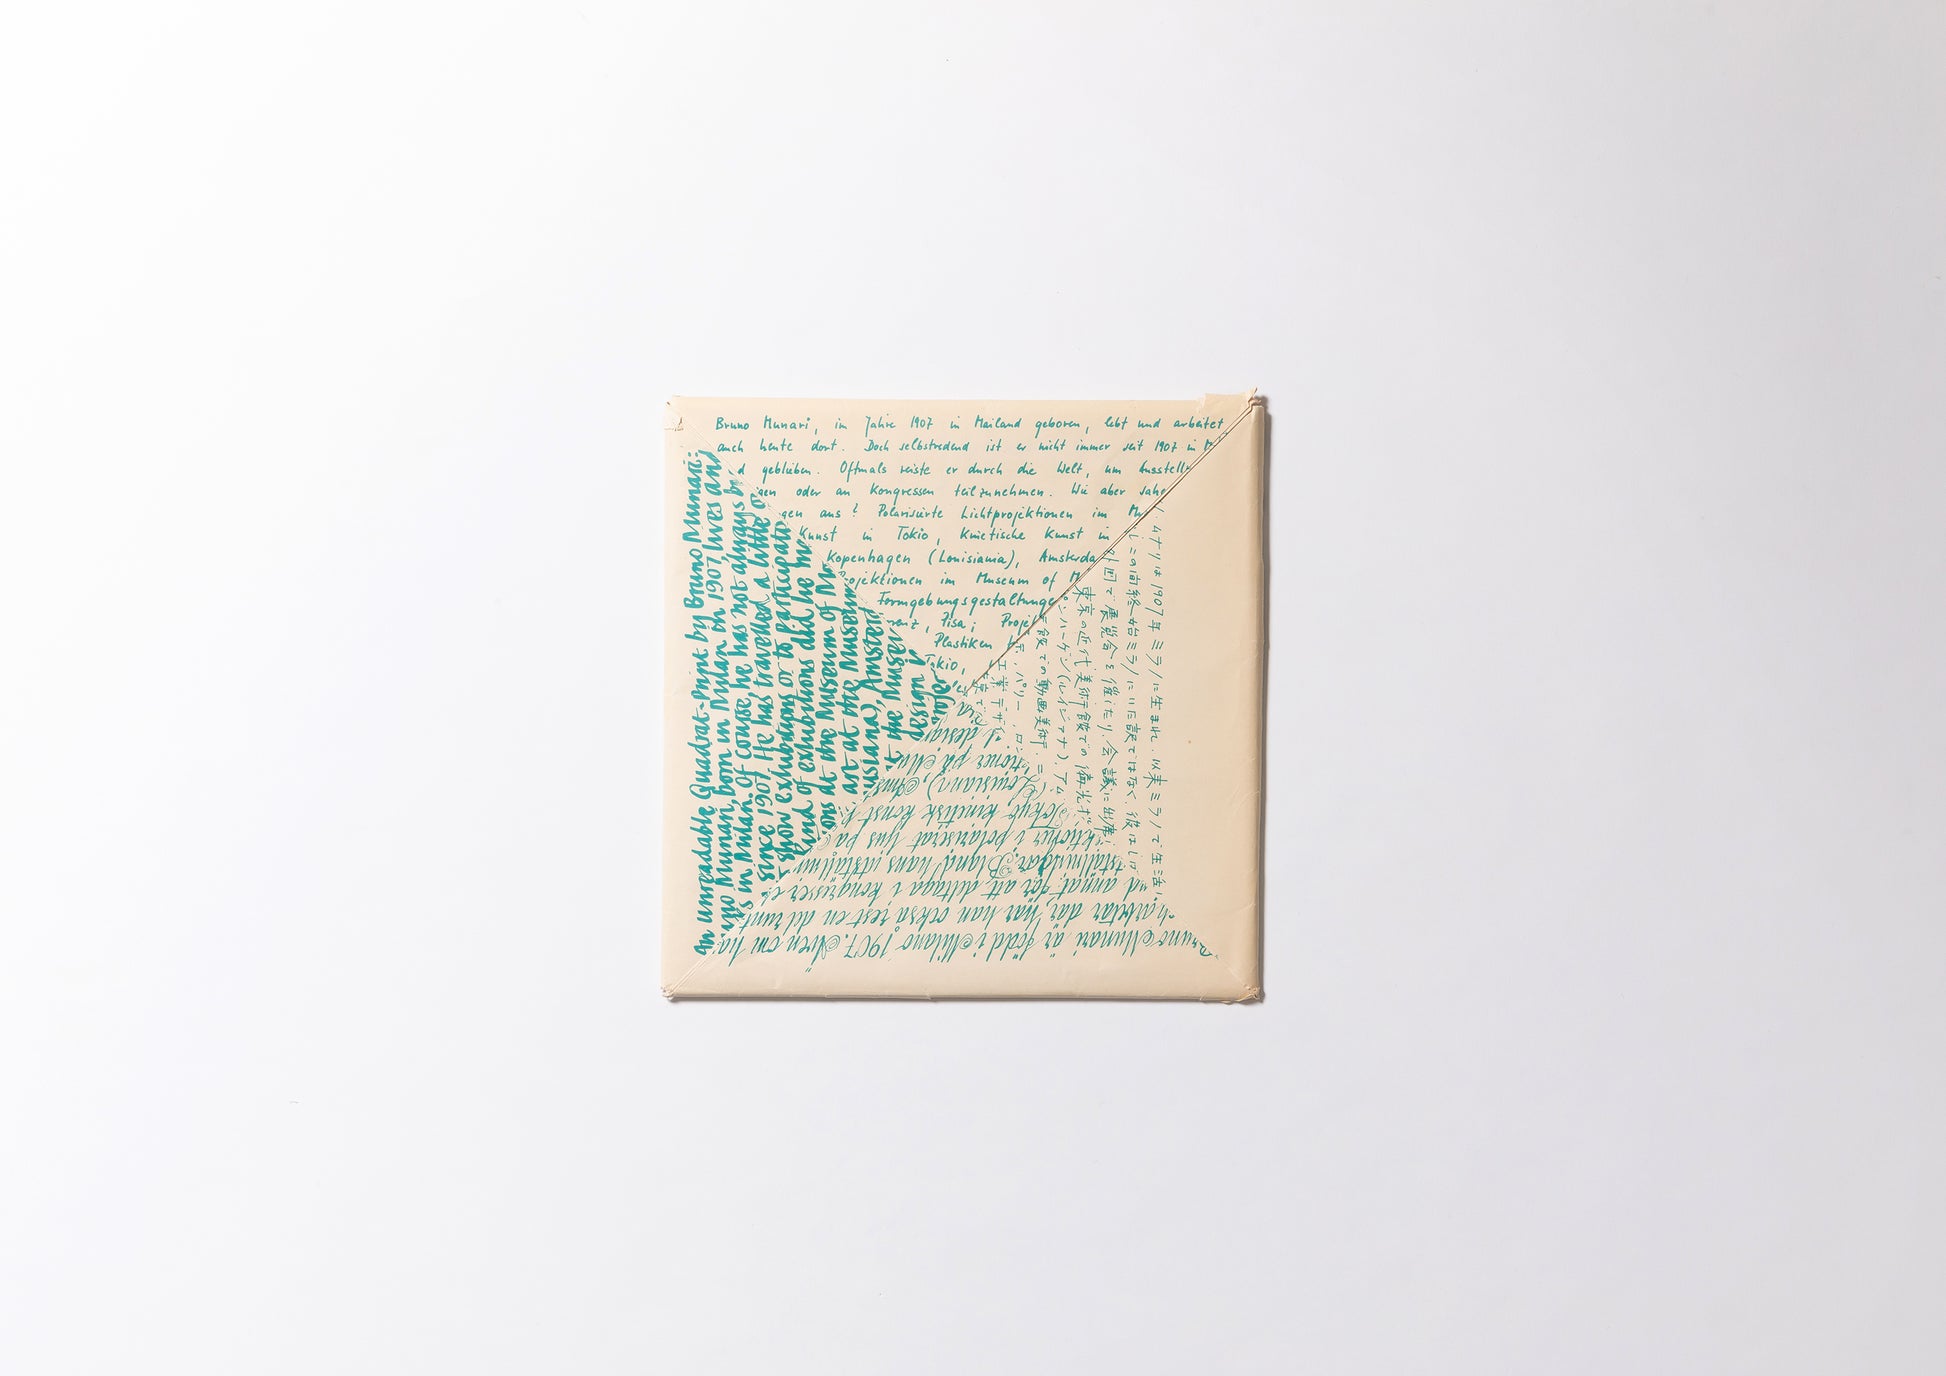 Bruno Munari, im Jahre 1907 in Mailand geboren, lebt und arbeitet
auch heute dort. Doch selbstredend ist er nicht immer seit 1907 in M
d geblieben. Oftmals reiste er durch die Welt, um Ausstellu
gen oder an Kongressen teilzunehmen. Wie aber sahe
gen aus? Polarisierte Lichtprojektionen im Mu
Kunst in Tokio, Kinetische Kunst in
Kopenhagen (Louisiania), Amsterda
rojektionen im Museum of M
Formgebungsgestaltunge
renz, Pisa; Proje
Plastiken
Tokio,
An unreadable Quadrat-Print by Bruno Munari:
uno Munari, born in Milan on 1907 lives and
s in Milan. Of course, he has not always be
since 1907. He has travelled a little
show exhibitions or to participate
kind of exhibitions did he m
ons at the Museum of M
art at the Museum
uisiana), Amsterd
t the Museu
design i
ムナリは1907年ミラノに生まれ、以来ミラノで生活
この間終始ミラノにいた訳ではなく、彼は
外国で展覧会を催したり、会議に出席
東京の近代美術館での偏光
ペンハーゲン(ルイジアナ)、アム
館での動画美術、ニ
パリー、ロン
工業デザ
Bruno Munari är född i Milano 1907. Även om ha
arbetar där, har han också rest en del runt
nd annat för att deltaga i kongresser
tställningar. Bland hans utställnin
ktioner i polariserat ljus på
Tokyo, kinetisk konst
(Louisiana), Ams
tioner på Mu
design